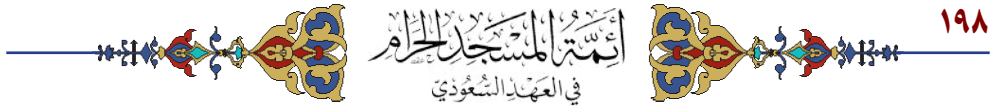 ١٩٨
أَئِمَّةُ المَسْجِدِ الحَرَامِ
فِي العَهْدِ السُّعُودِيّ